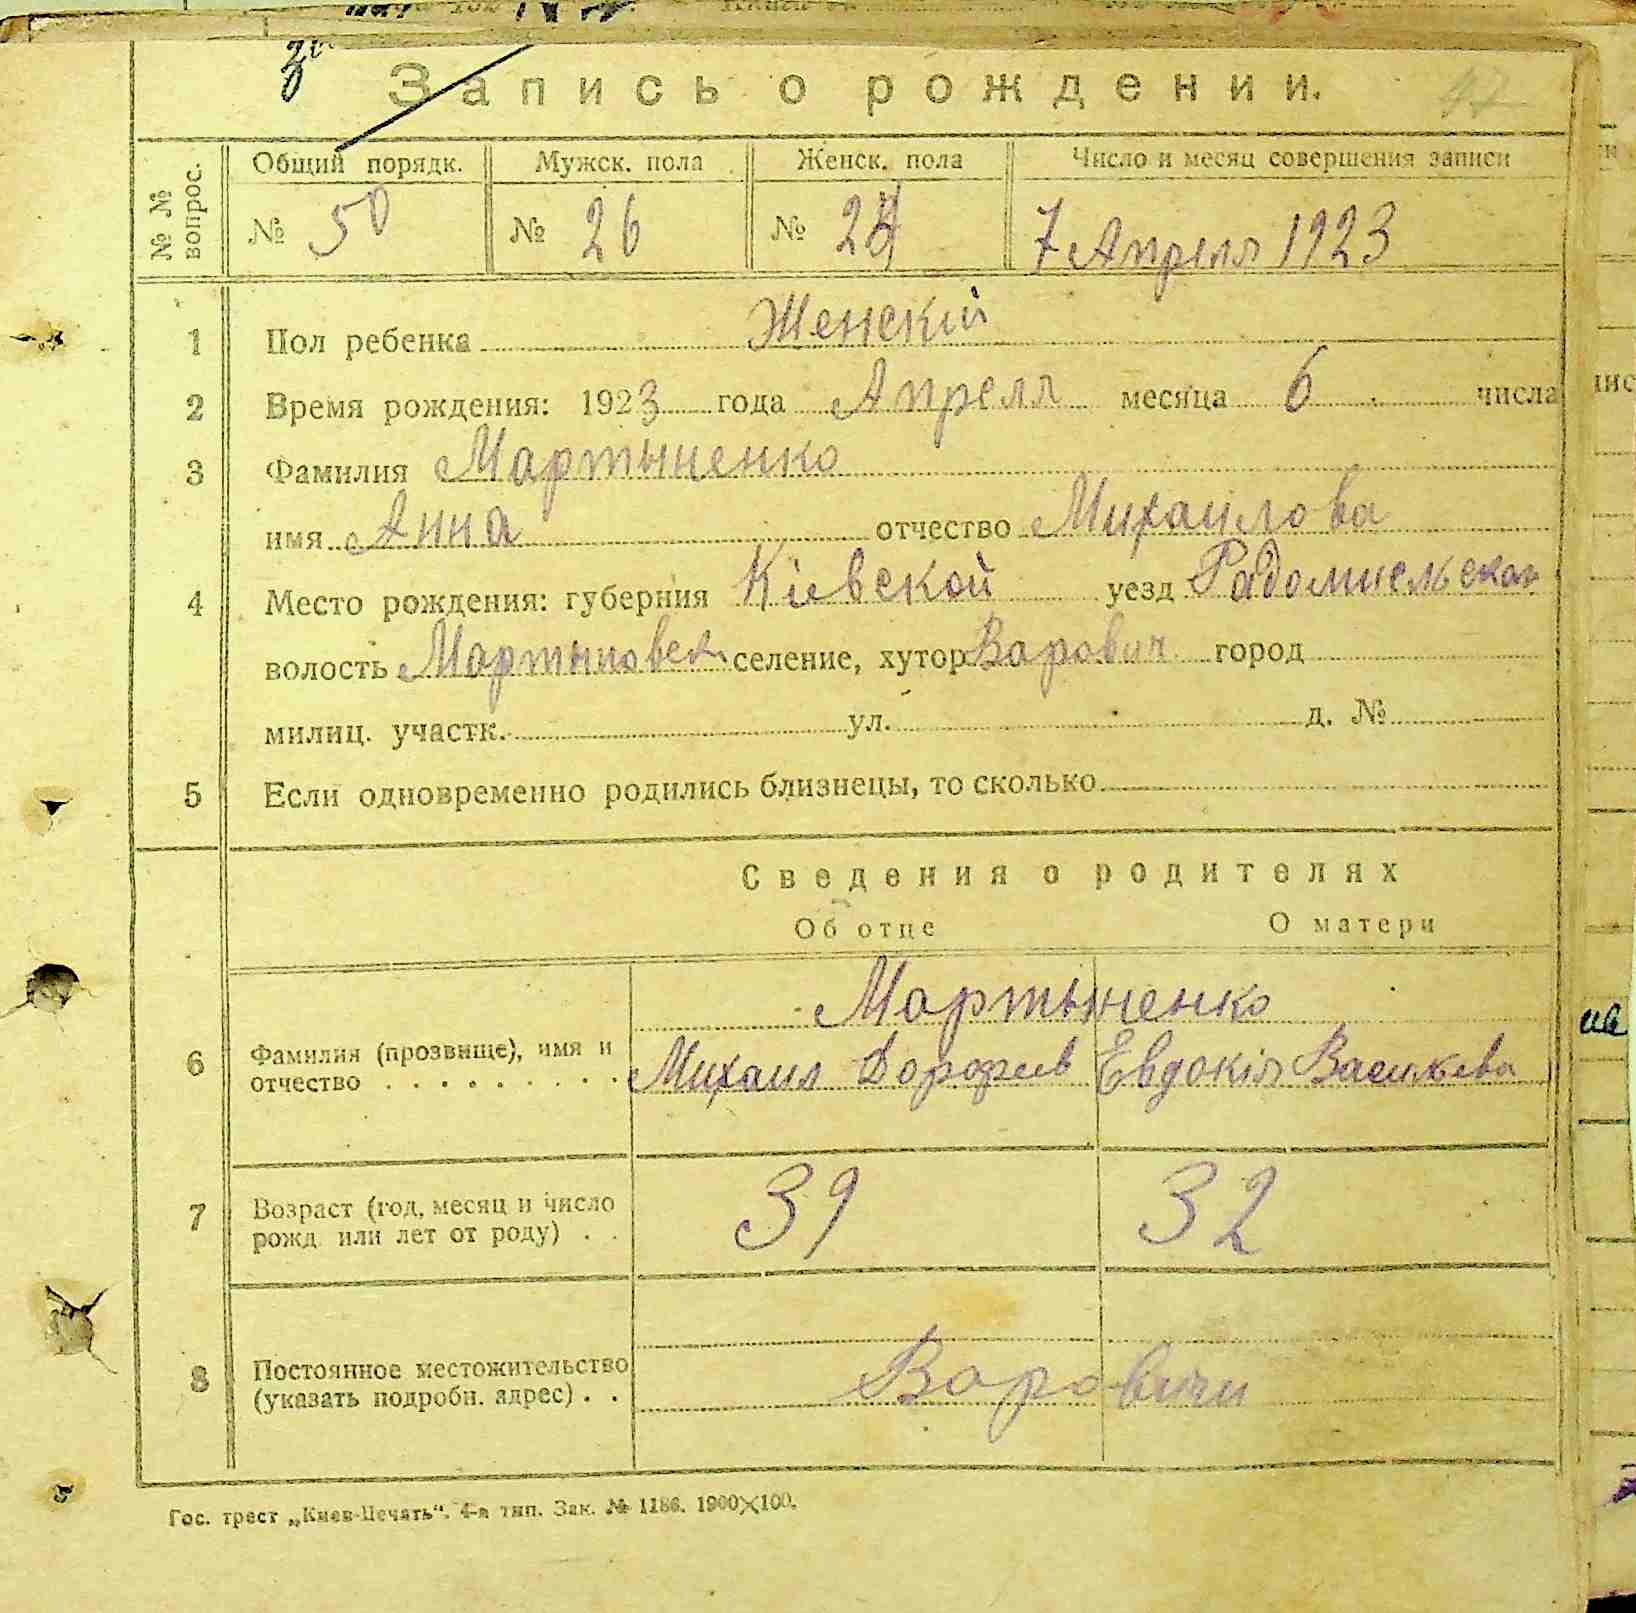 Запись о рождении.
№ № вопрос.
Общий порядк. Мужск. пола Женск. пола Число и месяц совершения записи
№ 50 № 26 № 24 7 Апреля 1923
1 Пол ребенка Женскій
2 Время рождения: 1923 года Апреля месяца 6 числа
3 Фамилия Мартыненко
имя Анна отчество Михаилова
4 Место рождения: губерния Кіевской уезд Радомисльской
волость Мартыновск селение, хутор Варович город
милиц. участк. ул. д. №
5 Если одновременно родились близнецы, то сколько
Сведения о родителях
Об отце О матери
Мартыненко
6 Фамилия (прозвище), имя и
отчество . . . . . . . . . Михаил Дорофеев Евдокія Васильева
7 Возраст (год, месяц и число
рожд. или лет от роду) . . 39 32
8 Постоянное местожительство
(указать подробн. адрес) . . Варовичи
Гос. трест „Киев-Печать“. 4-я тип. Зак. № 1186. 1900×100.